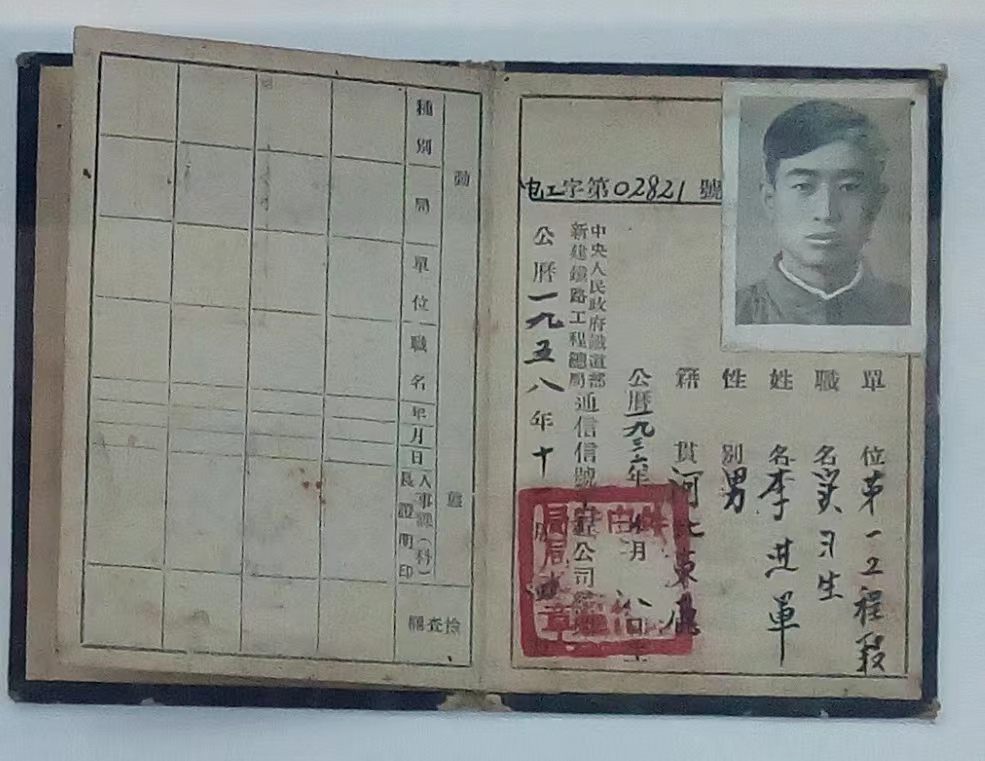 电工字第02821號
單位 第一工程段
職名 实习生
姓名 李 軍
性別 男
籍貫 河北東鹿
公曆一九三 年 月八日生
中央人民政府鐵道部
新建鐵路工程總局
通信信號工程公司經理
公曆一九五八年十月
動態
種別
局
單位
職名
年月日
人事課（科）
長證明印
檢查欄